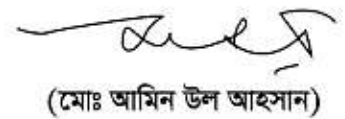 (মোঃ আমিন উল আহসান)